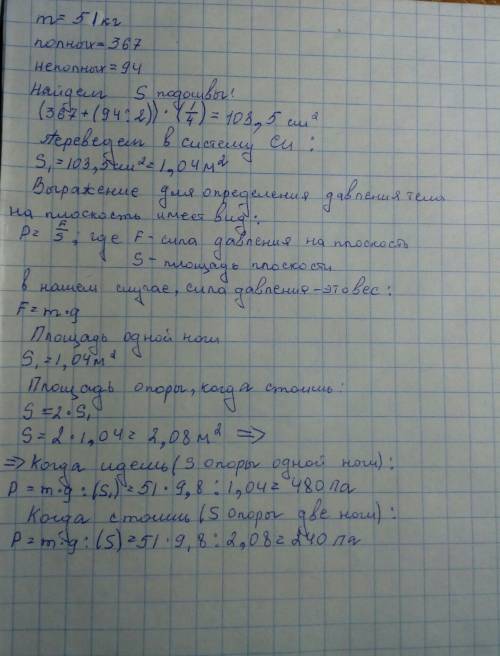 m = 51кг
полных = 367
неполных = 94
Найдем S подошвы!
(367+(94:2)) · (1/4) = 103,5 см²
Переведем в систему Си:
S₁ = 103,5 см² = 1,04 м²
Выражение для определения давления тела
на плоскость имеет вид:
P = F/S; где F - сила давления на плоскость
S - площадь плоскости
в нашем случае, сила давления - это вес:
F = m·g
Площадь одной ноги
S₁ = 1,04 м²
Площадь опоры, когда стоишь:
S = 2·S₁
S = 2·1,04 = 2,08 м² =>
=> Когда идешь (S опоры одной ноги):
P = m·g : (S₁) = 51·9,8 : 1,04 = 480 па
Когда стоишь (S опоры две ноги):
P = m·g : (S) = 51·9,8 : 2,08 = 240 па